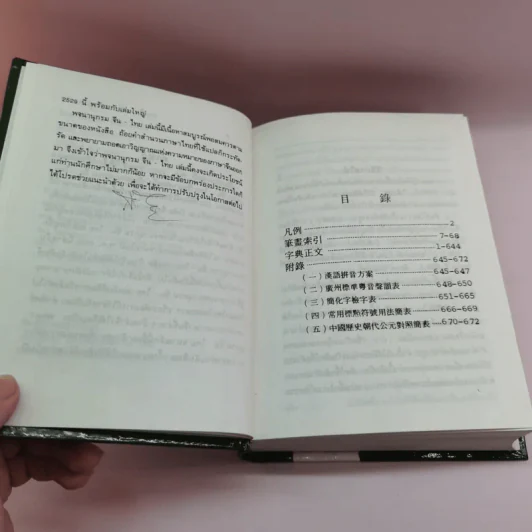 2525 นี้ พร้อมกับเล่มใหญ่
พจนานุกรม จีน - ไทย เล่มนี้มีเนื้อหาสมบูรณ์พอสมควรตาม
ขนาดของหนังสือ ถ้อยคำสำนวนภาษาไทยที่ใช้แปลก็กระทัด-
รัด และพยายามถอดเอาวิญญาณแห่งความหมายของภาษาจีนออก
มา จึงเข้าใจว่าพจนานุกรม จีน - ไทย เล่มนี้คงจะเกิดประโยชน์
แก่ท่านนักศึกษาไม่มากก็น้อย หากจะมีข้อบกพร่องประการใดก็
ได้โปรดช่วยแนะนำด้วย เพื่อจะได้ทำการปรับปรุงในโอกาสต่อไป
目 錄
凡例 2
筆畫索引 7-68
字典正文 1-644
附錄 645-672
(一) 漢語拼音方案 645-647
(二) 廣州標準粵音聲韻表 648-650
(三) 簡化字檢字表 651-665
(四) 常用標點符號用法簡表 666-669
(五) 中國歷史朝代公元對照簡表 670-672